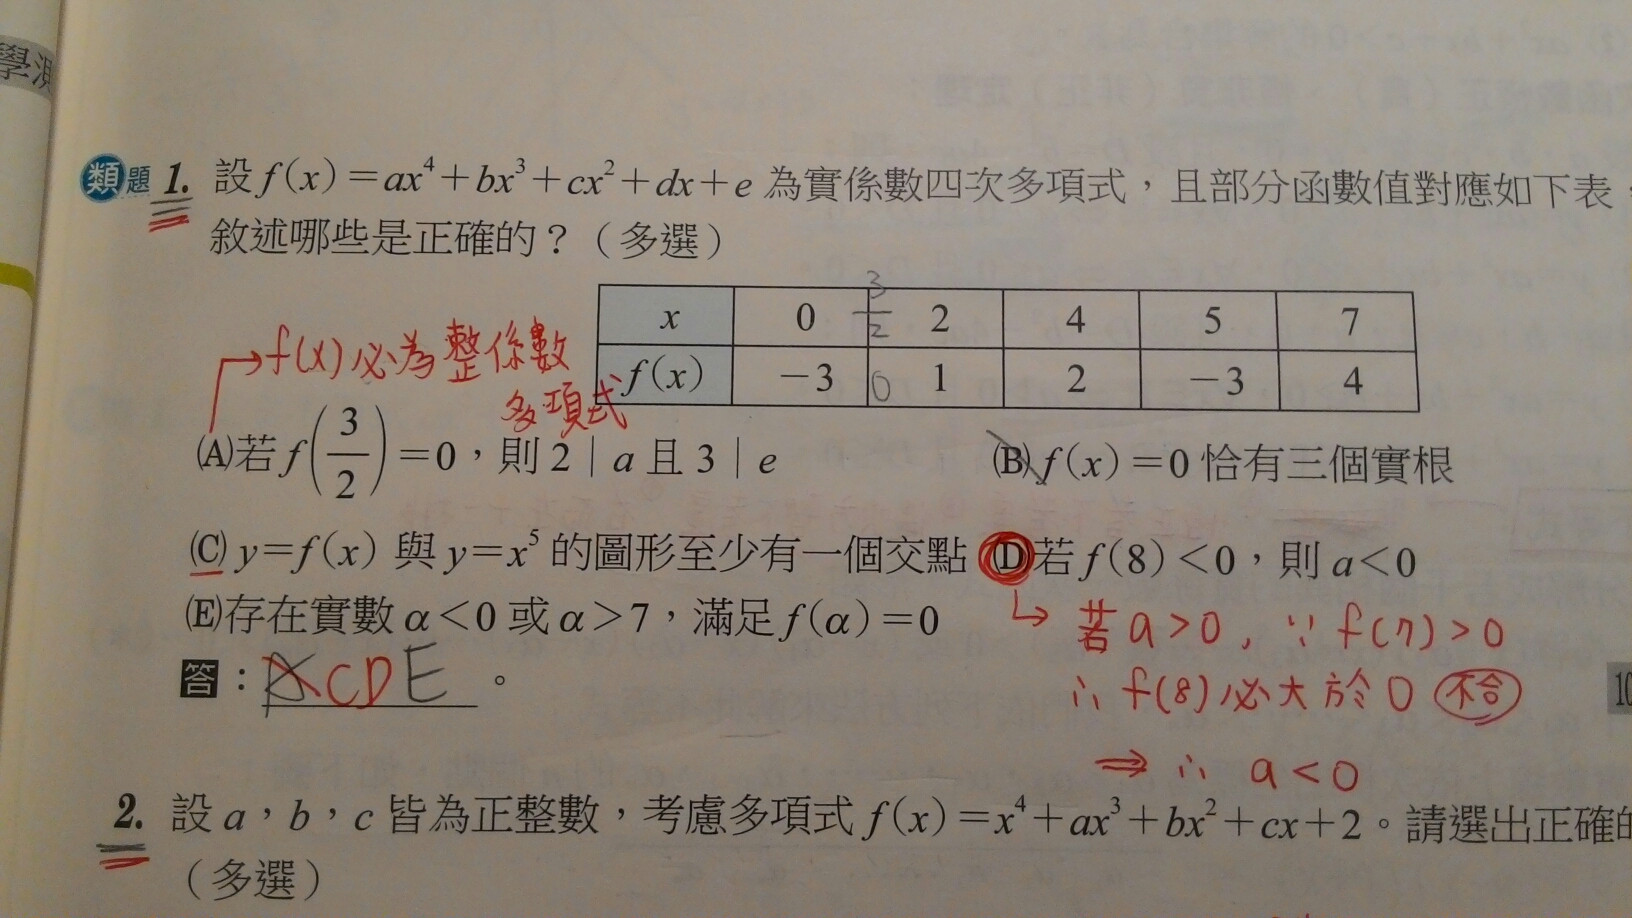 學測
類題 1. 設 f(x)=ax⁴+bx³+cx²+dx+e 為實係數四次多項式，且部分函數值對應如下表，
敘述哪些是正確的？（多選）
x 0 3/2 2 4 5 7
f(x) −3 0 1 2 −3 4
→f(x)必為整係數
多項式
(A)若 f(3/2)=0，則 2｜a 且 3｜e (B) f(x)=0 恰有三個實根
(C) y=f(x) 與 y=x⁵ 的圖形至少有一個交點 (D)若 f(8)<0，則 a<0
(E)存在實數 α<0 或 α>7，滿足 f(α)=0
↳ 若 a>0, ∵ f(7)>0
∴ f(8)必大於0 不合
⇒ ∴ a<0
答：CDE。
10
2. 設 a，b，c 皆為正整數，考慮多項式 f(x)=x⁴+ax³+bx²+cx+2。請選出正確的
（多選）